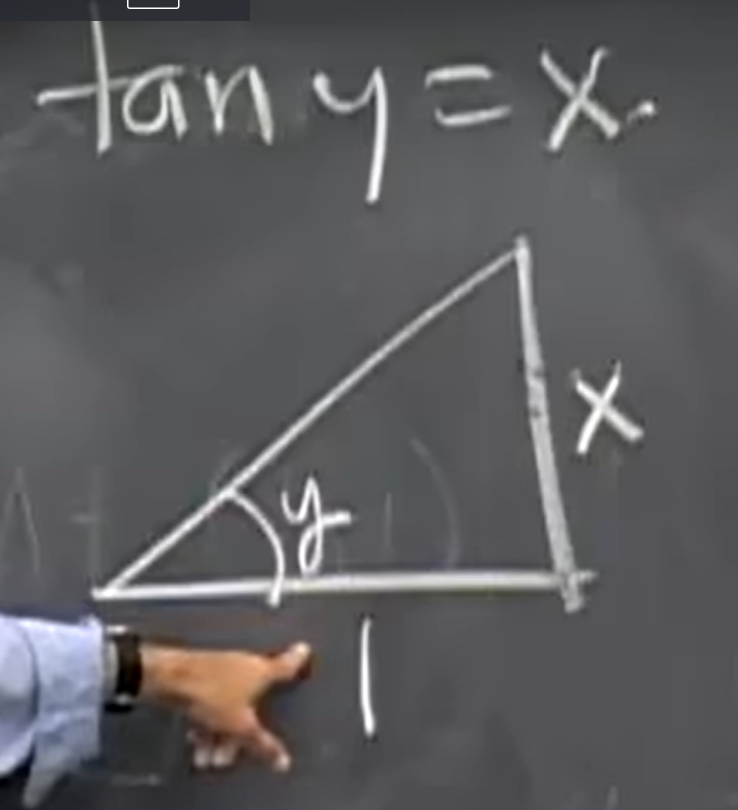 tan y = x.
x
y
1